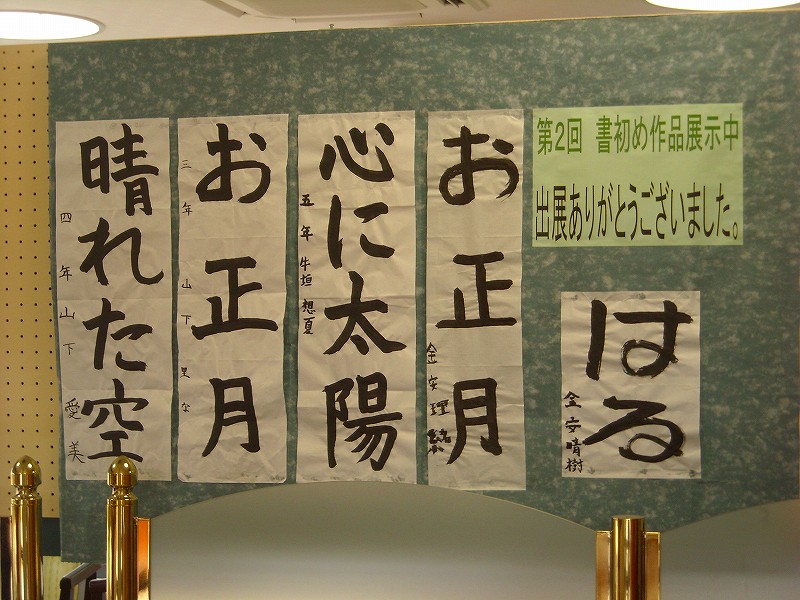 第2回 書初め作品展示中
出展ありがとうございました。
はる
金安晴樹
お正月
金安理緒
心に太陽
五年 牛垣想夏
お正月
三年 山下里な
晴れた空
四年 山下愛美